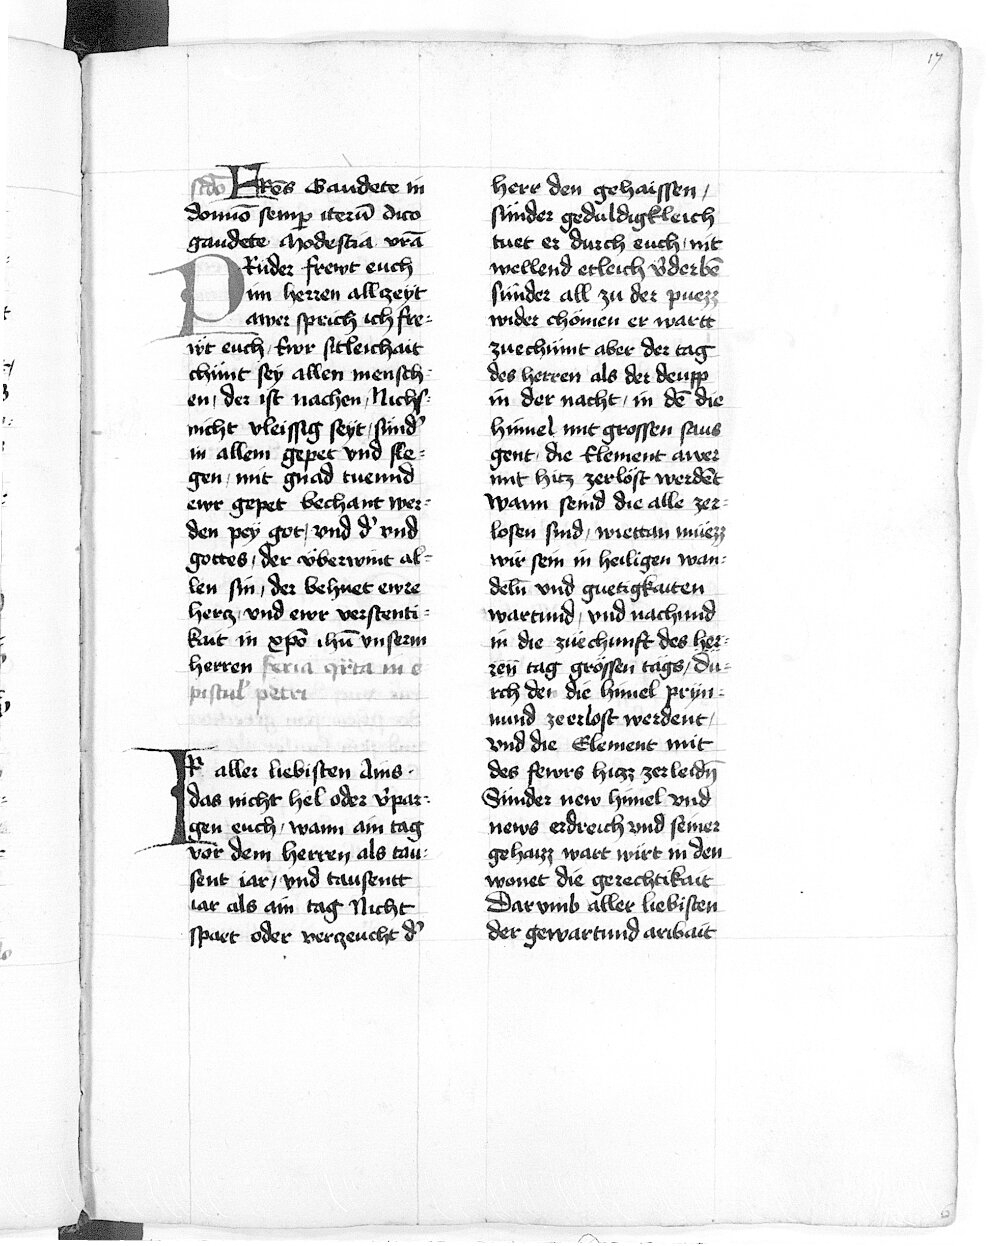 17
FRēs Gaudete in
domīo semꝑ iterū dico
gaudete Modestia vrā
PRüder frewt euch
im herren allczeyt
awer sprich ich fre-
wt euch / Ewr sitleichait
chümt sey allen mensch-
en / der ist nachen / Nichs-
nicht vleissig seyt / sund'
in allem gepet vnd fle-
gen / mit gnad tuennd
ewr gepet bechant wer-
den pey got / vnd d' vnd
gottes / der v̈berwint al-
len sin / der behuet ewre
hercz / vnd ewr verstenti-
kait in xp̄o ihū vnserm
herren feria qrta in e
pistul' petri
IR aller liebisten Ains ·
das nicht hel oder v'par-
gen euch / wann ain tag
vor dem herren als tau-
sent iar / vnd tausentt
iar als ain tag Nicht
spart oder verczeucht d'
herr den gehaissen /
sünder geduldigkleich
tuet er durch euch / nit
wellend etleich v'derbē
sünder all zu der puezz
wider chömen er wartt
zuechümt aber der tag
des herren als der deupp
in der nacht / in dē die
himel mit grossen saus
gent / die Element awer
mit hitz zerlöst werdēt
wann seind die alle zer-
losen sind / wiettan müezz
wir sein in heiligen wan-
deln̄ vnd guetigkaiten
wartund / vnd nachund
in die zuechunft des her-
ren tag grössen tags / Du-
rch den die himel prin-
nund zeerlost werdent /
vnd die Element mit
des fewrs hiczz zerleidn̄
Sünder new himel vnd
news erdreich vnd seiner
gehaizz wart wirt in den
wonet die gerechtikait
Dar vmb aller liebisten
der gewartund aribait